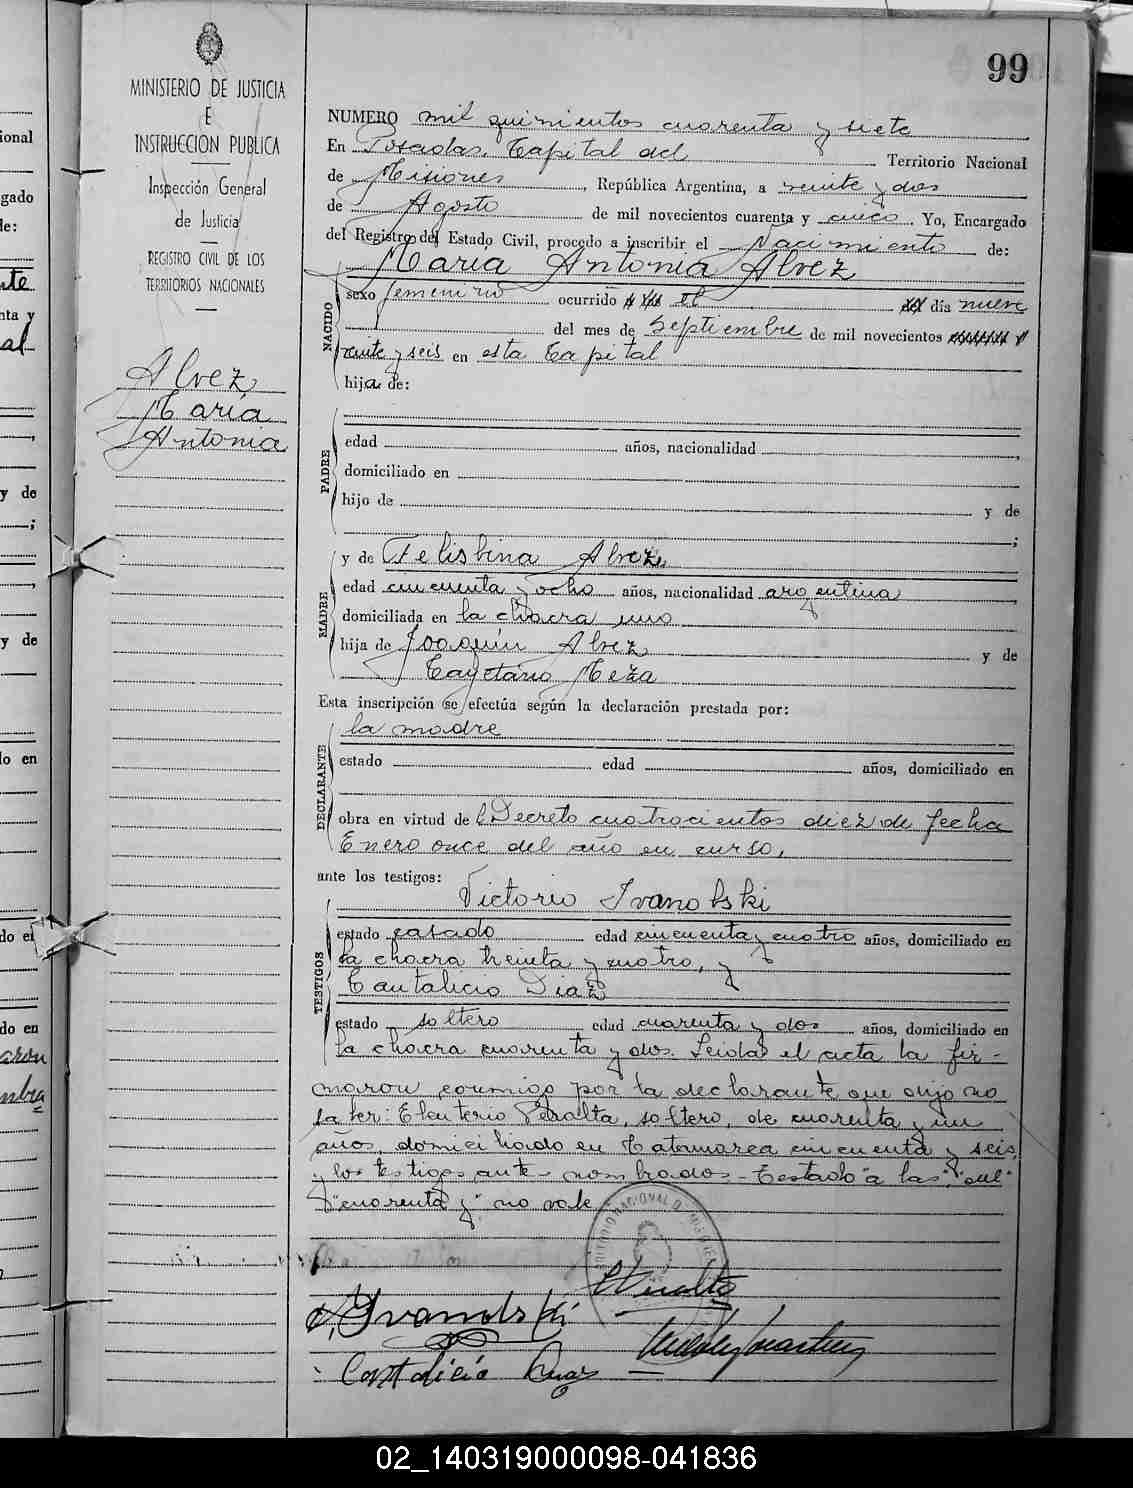 99
MINISTERIO DE JUSTICIA
E
INSTRUCCION PUBLICA
Inspección General
de Justicia
REGISTRO CIVIL DE LOS
TERRITORIOS NACIONALES
Alvez
María
Antonia
NUMERO mil quinientos cuarenta y siete
En Posadas, Capital del Territorio Nacional
de Misiones, República Argentina, a veinte y dos
de Agosto de mil novecientos cuarenta y cinco. Yo, Encargado
del Registro del Estado Civil, procedo a inscribir el Nacimiento de:
María Antonia Alvez
NACIDO
sexo femenino ocurrido el día nueve
del mes de Septiembre de mil novecientos
veinte y seis en esta Capital
hija de:
PADRE
edad años, nacionalidad
domiciliado en
hijo de y de
;
MADRE
y de Felisbina Alvez
edad cincuenta y ocho años, nacionalidad argentina
domiciliada en la chacra uno
hija de Joaquín Alvez y de
Cayetana Meza
Esta inscripción se efectúa según la declaración prestada por:
DECLARANTE
la madre
estado edad años, domiciliado en
obra en virtud del Decreto cuatrocientos diez de fecha
Enero once del año en curso,
ante los testigos:
TESTIGOS
Victorio Ivanoski
estado casado edad cincuenta y cuatro años, domiciliado en
la chacra treinta y cuatro, y
Cantalicio Diaz
estado soltero edad cuarenta y dos años, domiciliado en
la chacra cuarenta y dos. Leida el acta la fir-
maron conmigo por la declarante que dijo no
saber: Eleuterio Peralta, soltero, de cuarenta y un
años, domiciliado en Catamarca cincuenta y seis,
y los testigos antes nombrados - Testado "a las", "del"
"cuarenta y" no vale
Peralta
Ivanoski
Cantalicio Diaz
02_140319000098-041836